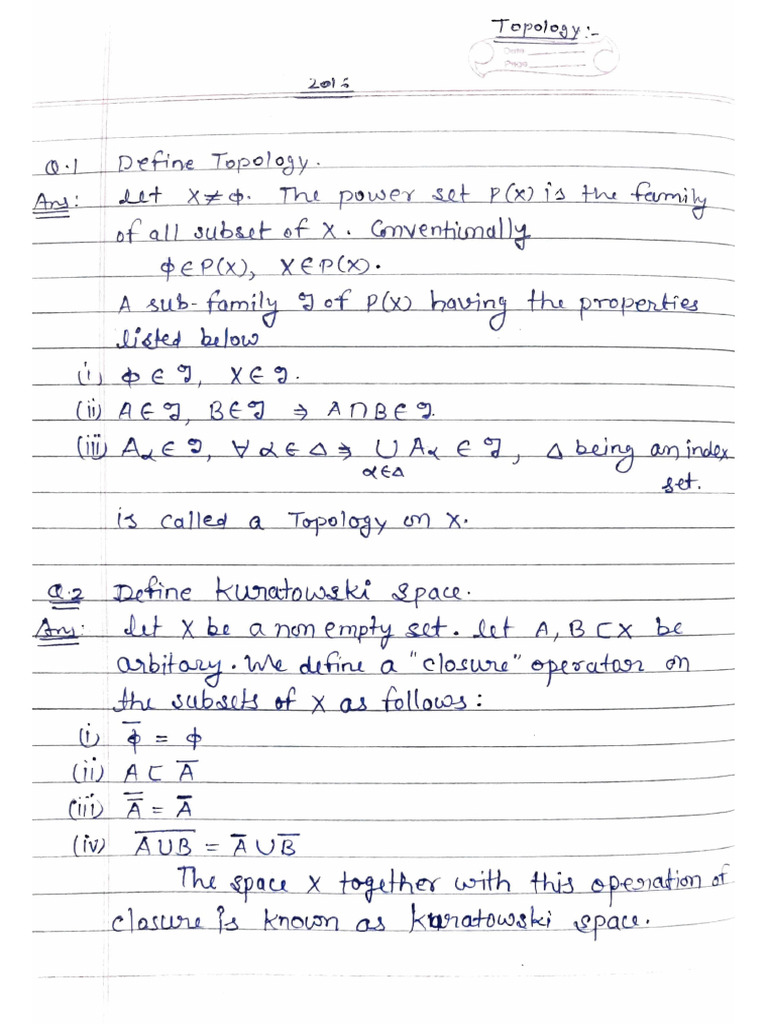 Topology:-
Date
Page
Q.1 Define Topology.
Ans: Let X≠ϕ. The power set P(X) is the family
of all subset of X. Conventionally
ϕ∈P(X), X∈P(X).
A sub-family ℑ of P(X) having the properties
listed below
(i) ϕ ∈ ℑ, X ∈ ℑ.
(ii) A∈ℑ, B∈ℑ ⇒ A∩B∈ℑ.
(iii) Aα∈ℑ, ∀ α∈∆ ⇒ ∪ Aα ∈ ℑ, ∆ being an index
α∈∆
set.
is called a Topology on X.
Q.2 Define Kuratowski space.
Ans: Let X be a non empty set. Let A, B ⊂ X be
arbitary. We define a "closure" operator on
the subsets of X as follows:
(i) ϕ̅ = ϕ
(ii) A ⊂ A̅
(iii) A̿ = A̅
(iv) A̅∪̅B̅ = A̅ ∪ B̅
The space X together with this operation of
closure is known as Kuratowski space.